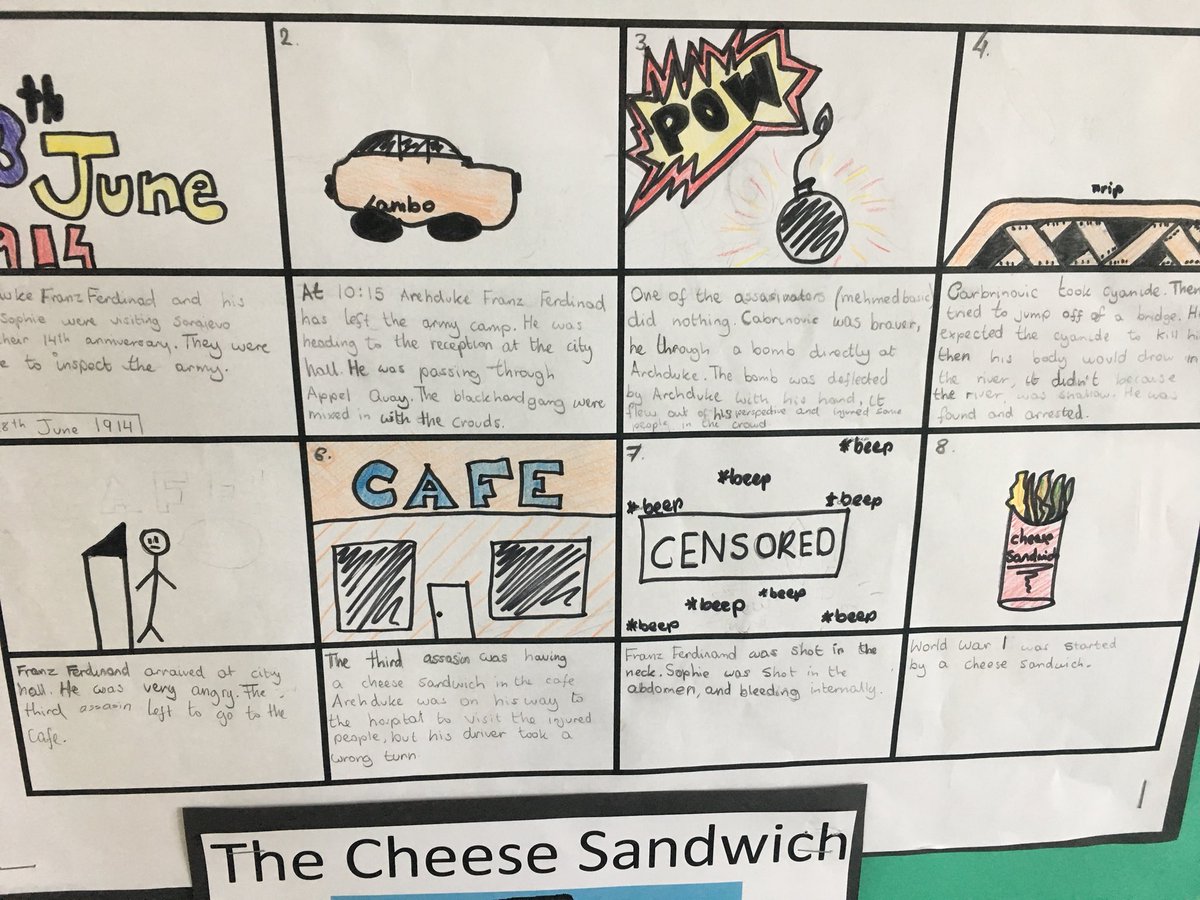 th
June
1914
2.
Lambo
3.
POW
4.
#rip
Franz Ferdinad and his
Sophie were visiting Sarajevo
their 14th anniversary. They were
to inspect the army.
8th June 1914
At 10:15 Archduke Franz Ferdinad
has left the army camp. He was
heading to the reception at the city
hall. He was passing through
Appel Quay. The blackhand gang were
mixed in with the crouds.
One of the assasinators (mehmedbasic)
did nothing. Cabrinovic was braver,
he through a bomb directly at
Archduke. The bomb was deflected
by Archduke with his hand, it
flew out of his perspective and injured some
people in the crowd
Carbrinovic took cyanide. Then
tried to jump off of a bridge. He
expected the cyanide to kill him
then his body would drow in
the river, it didn't because
the river, was shallow. He was
found and arrested.
6.
CAFE
7.
*beep
*beep
*beep
*beep
CENSORED
*beep
*beep
*beep
*beep
8.
cheese
Sandwich
Franz Ferdinand arraived at city
hall. He was very angry. The
third assasin left to go to the
Cafe.
The third assasin was having
a cheese sandwich in the cafe
Archduke was on his way to
the hospital to visit the injured
people, but his driver took a
wrong turn
Franz Ferdinand was shot in the
neck. Sophie was shot in the
abdomen, and bleeding internally.
World War 1 was started
by a cheese sandwich.
The Cheese Sandwich